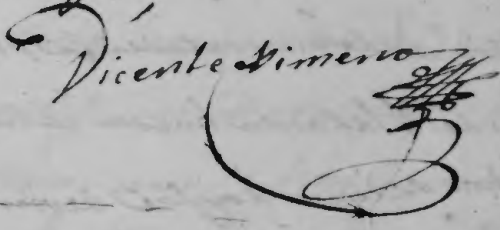 Vicente Ximeno